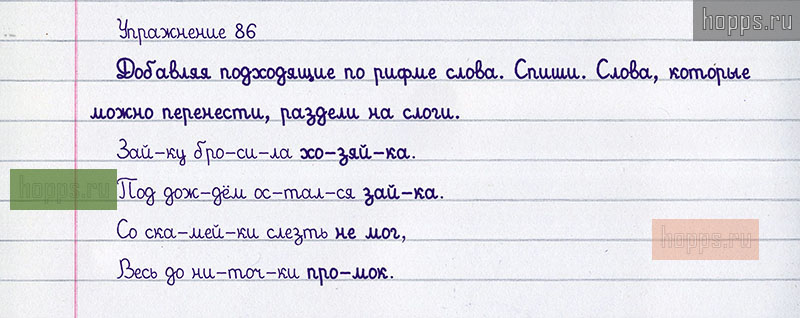 hopps.ru
Упражнение 86
Добавляя подходящие по рифме слова. Спиши. Слова, которые
можно перенести, раздели на слоги.
Зай-ку бро-си-ла хо-зяй-ка.
hopps.ru
Под дож-дём ос-тал-ся зай-ка.
Со ска-мей-ки слезть не мог,
hopps.ru
Весь до ни-точ-ки про-мок.